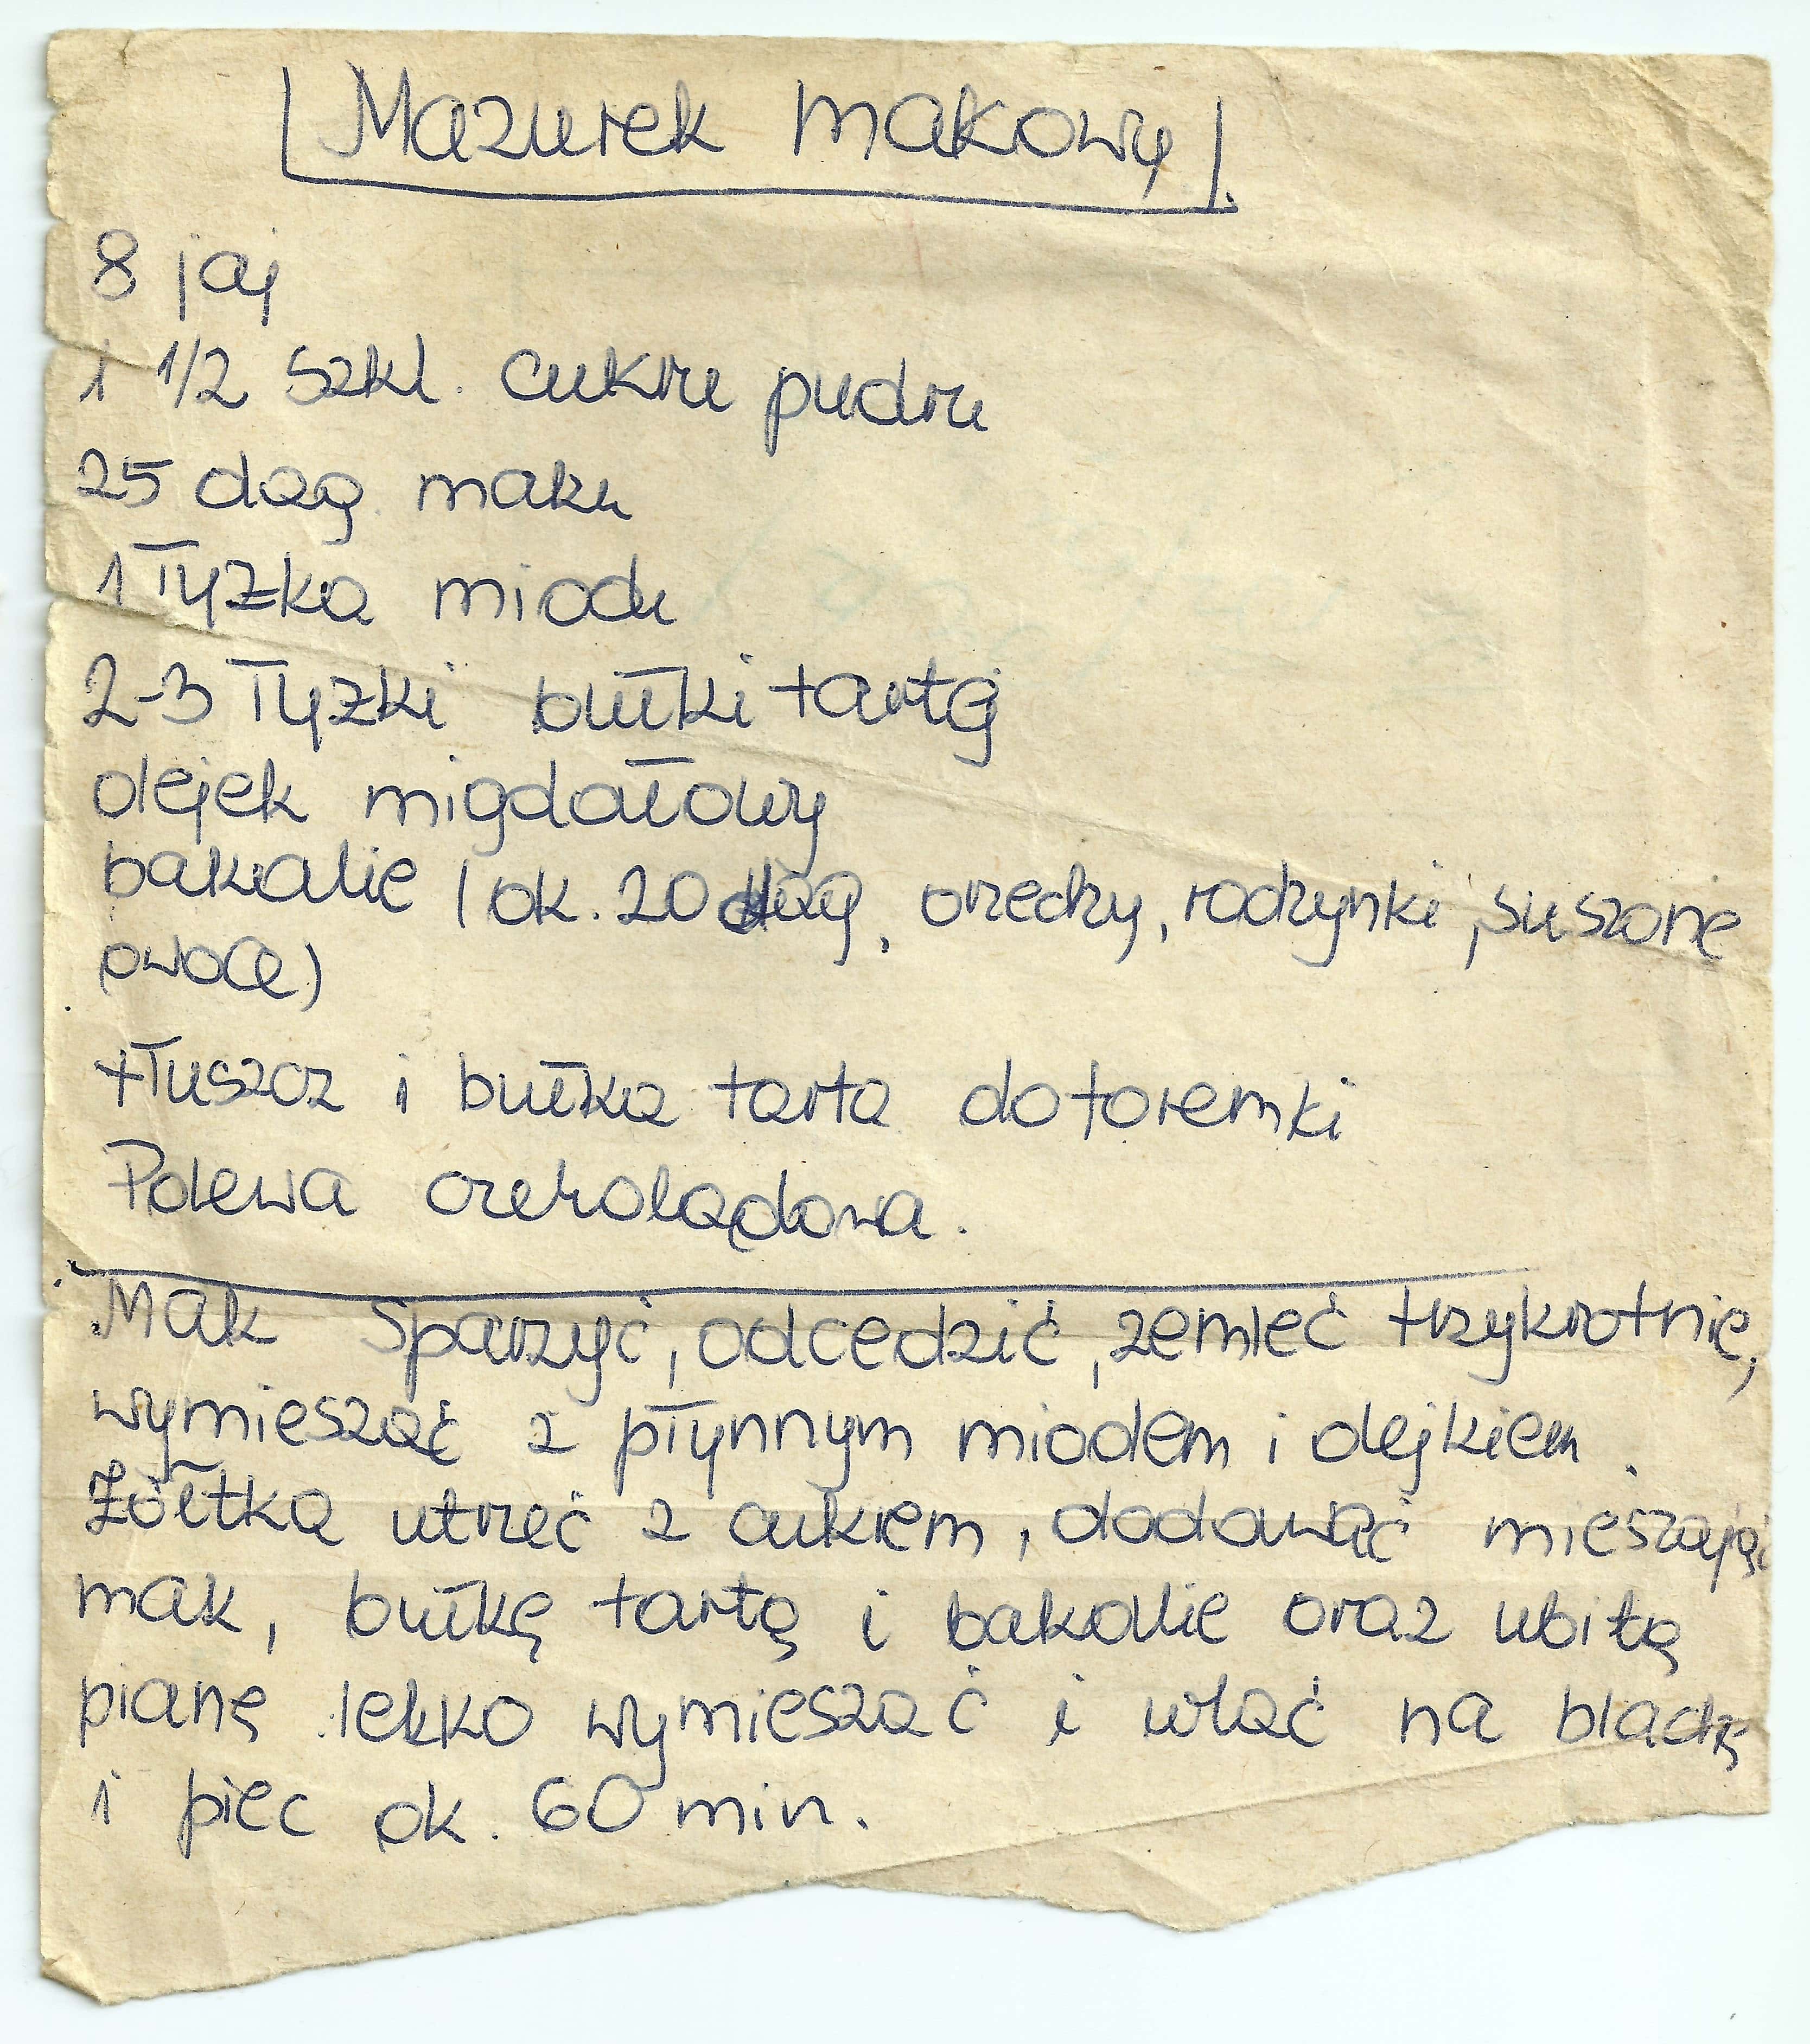 Mazurek makowy
8 jaj
1 1/2 szkl. cukru pudru
25 dag. maku
1 łyżka miodu
2-3 łyżki bułki tartej
olejek migdałowy
bakalie (ok. 20 dag, orzechy, rodzynki, suszone
owoce)
tłuszcz i bułka tarta do foremki
Polewa czekoladowa.
Mak sparzyć, odcedzić, zemleć trzykrotnie,
wymieszać z płynnym miodem i olejkiem.
Żółtka utrzeć z cukrem, dodawać mieszając
mak, bułkę tartą i bakalie oraz ubitą
pianę lekko wymieszać i wlać na blachę
i piec ok. 60 min.